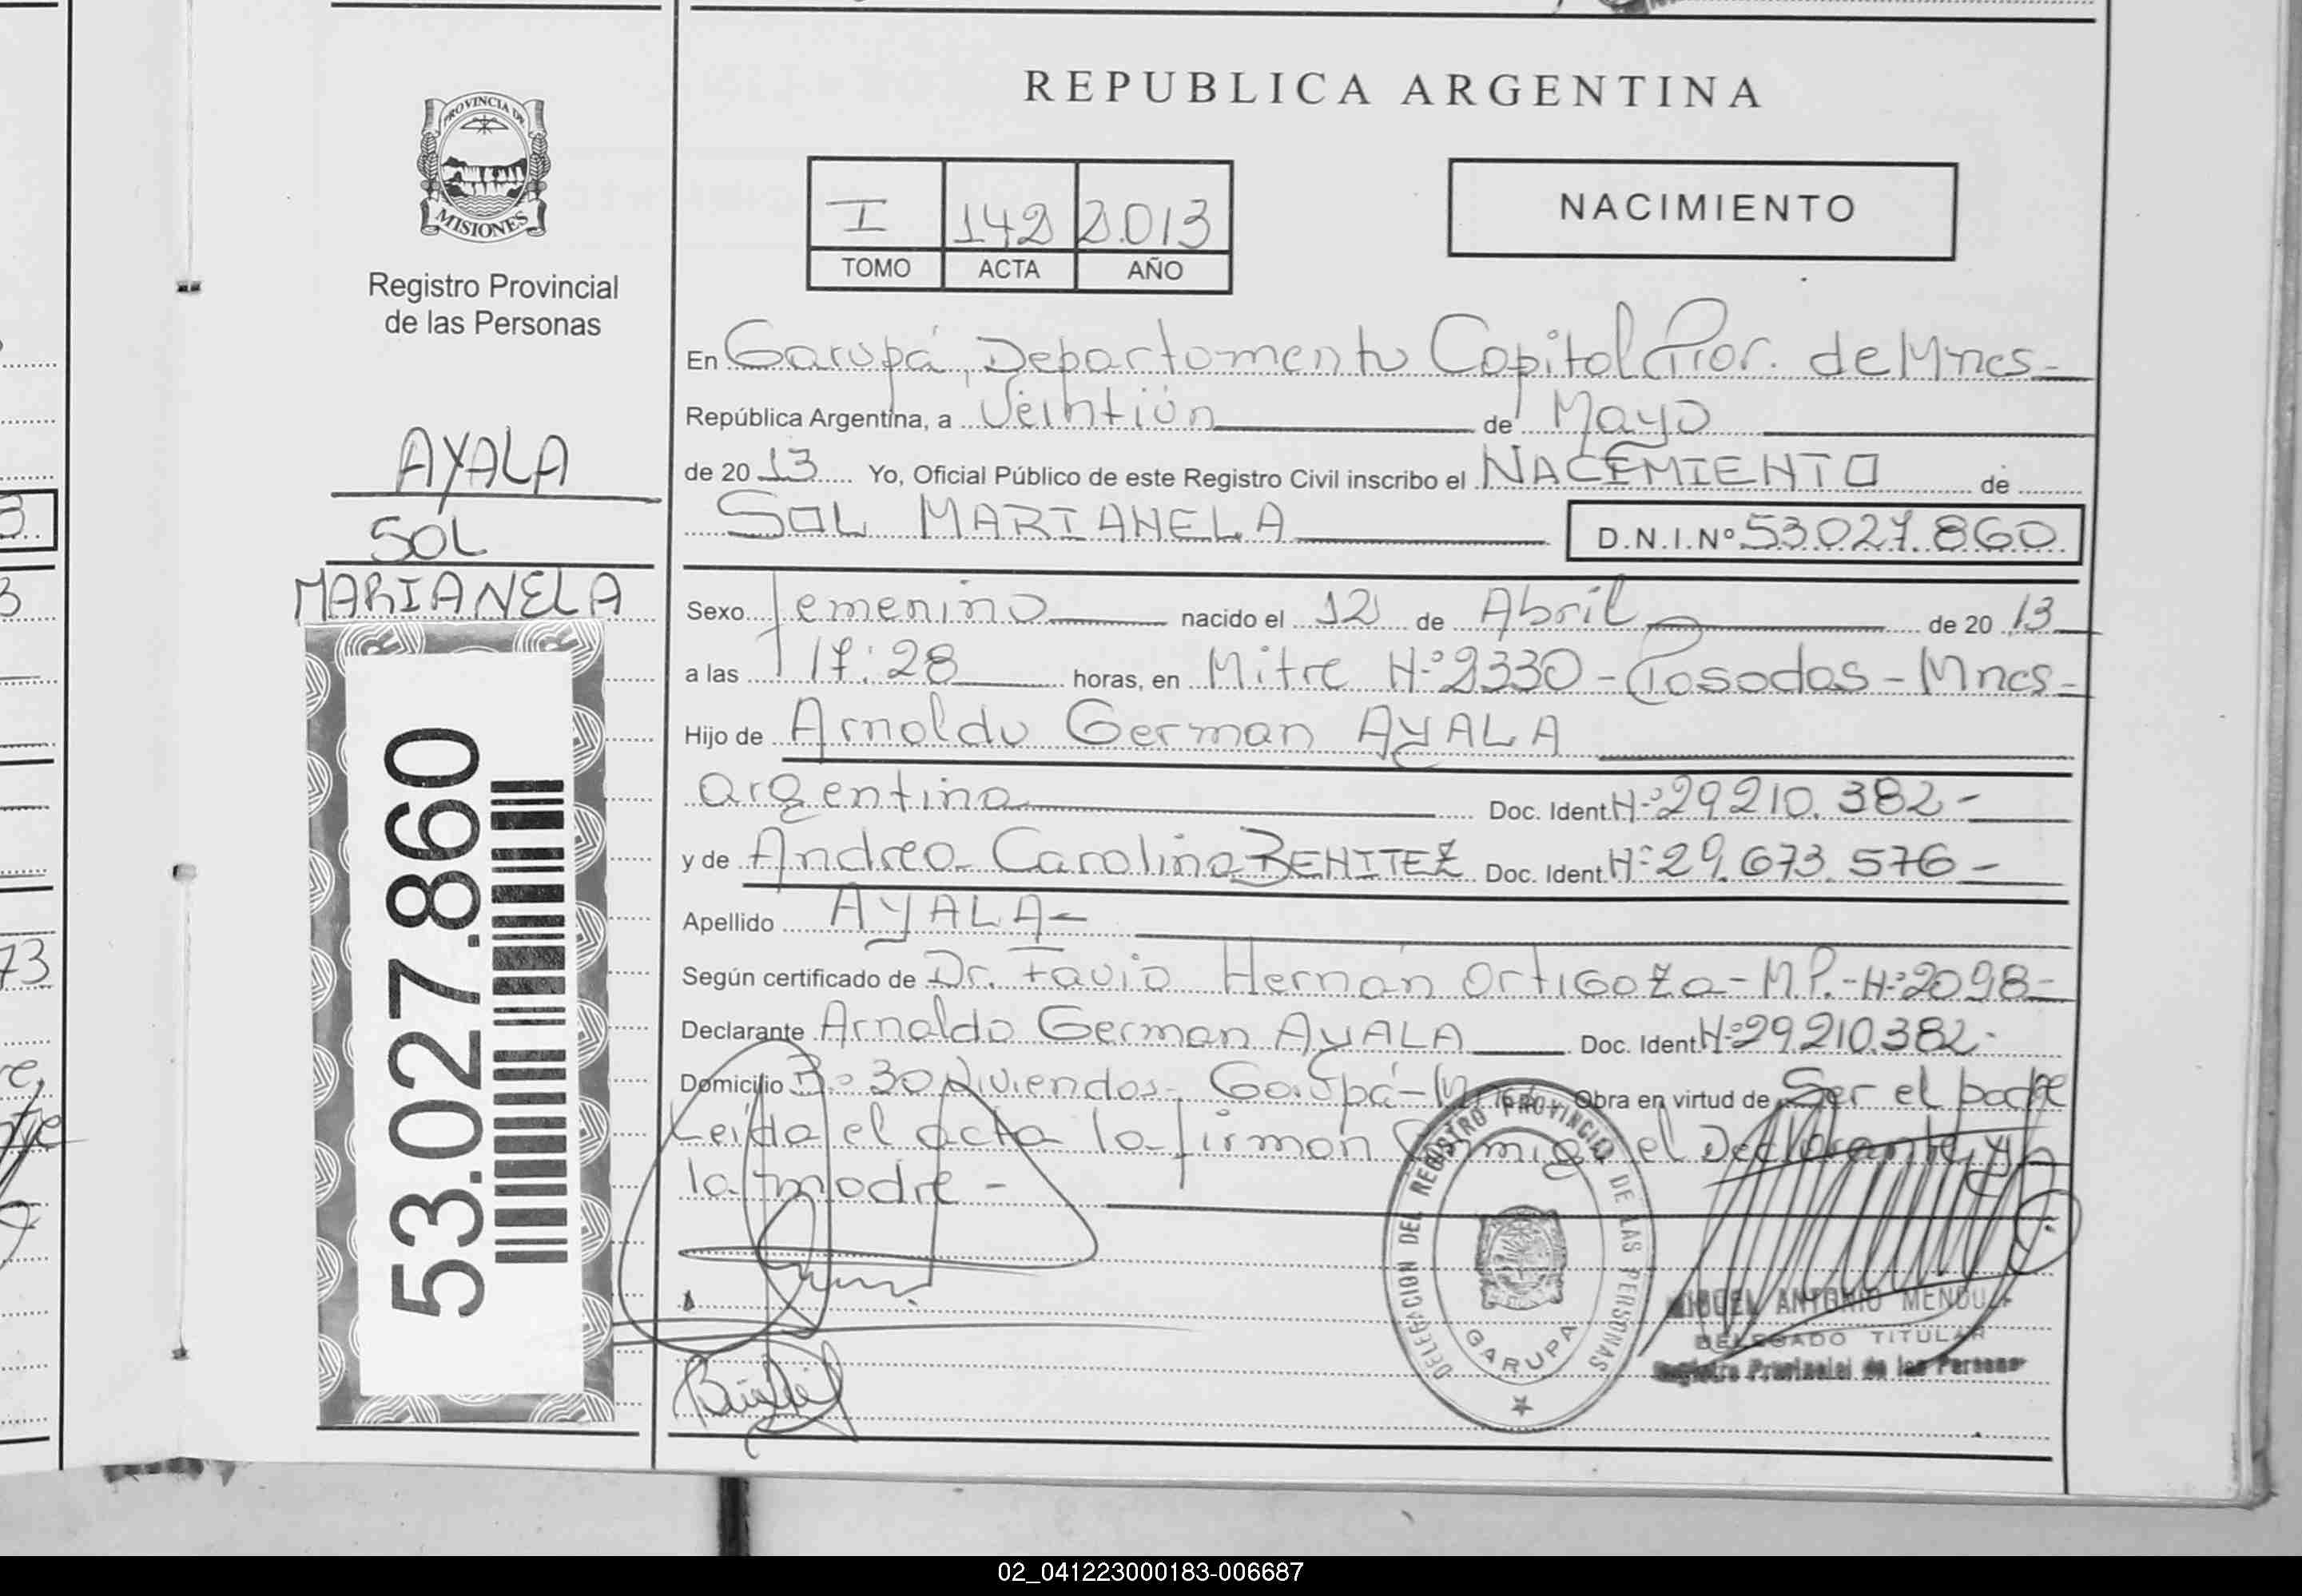 REPUBLICA ARGENTINA
PROVINCIA DE
MISIONES
Registro Provincial
de las Personas
I 142 2.013
TOMO ACTA AÑO
NACIMIENTO
AYALA
SOL
MARIANELA
53.027.860
En Garupá, Departamento Capital Prov. de Mnes-
República Argentina, a Veintiún de Mayo
de 20 13 Yo, Oficial Público de este Registro Civil inscribo el NACIMIENTO de
SOL MARIANELA D.N.I.Nº 53.027.860
Sexo femenino nacido el 12 de Abril de 20 13
a las 17:28 horas, en Mitre N:º 2330 - Posadas - Mnes-
Hijo de Arnoldo German AYALA
argentina Doc. Ident. N:º 29.210.382-
y de Andrea Carolina BENITEZ Doc. Ident. N:º 29.673.576-
Apellido AYALA-
Según certificado de Dr. Favio Hernán Ortigoza - M.P.-N:º 2098-
Declarante Arnoldo German AYALA Doc. Ident. N:º 29.210.382-
Domicilio Bº 30 Viviendas- Garupá- Obra en virtud de Ser el padre
Leída el acta la firman conmigo el Declarante y
la madre -
DELEGACION DEL REGISTRO PROVINCIAL DE LAS PERSONAS
GARUPA
MIGUEL ANTONIO
DELEGADO TITULAR
Registro Provincial de las Personas
73
02_041223000183-006687